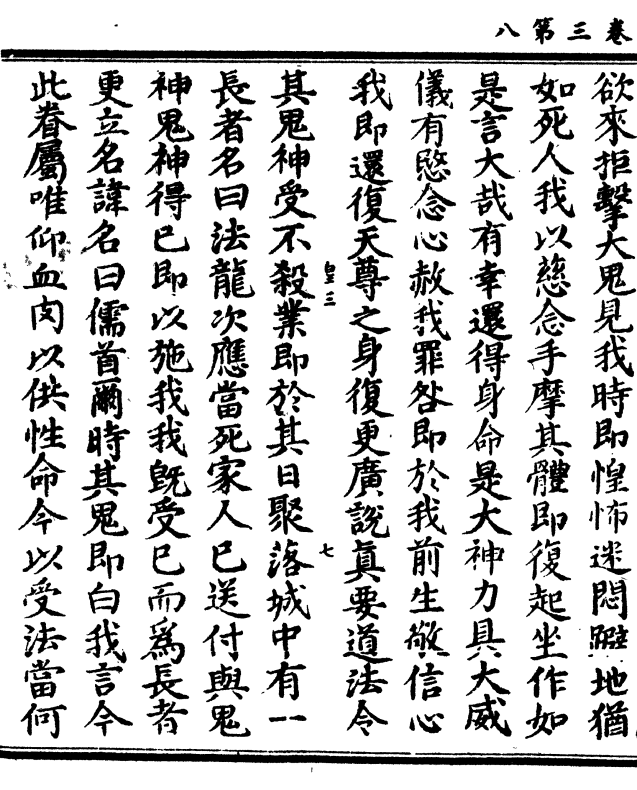 卷三第八
欲來拒擊大鬼見我時即惶怖迷悶躃地猶
如死人我以慈念手摩其體即復起坐作如
是言大哉有幸還得身命是大神力具大威
儀有愍念心赦我罪咎即於我前生敬信心
我即還復天尊之身復更廣說真要道法令
皇三 七
其鬼神受不殺業即於其日聚落城中有一
長者名曰法龍次應當死家人已送付與鬼
神鬼神得已即以施我我既受已而為長者
更立名諱名曰儒首爾時其鬼即白我言今
此眷屬唯仰血肉以供性命今以受法當何